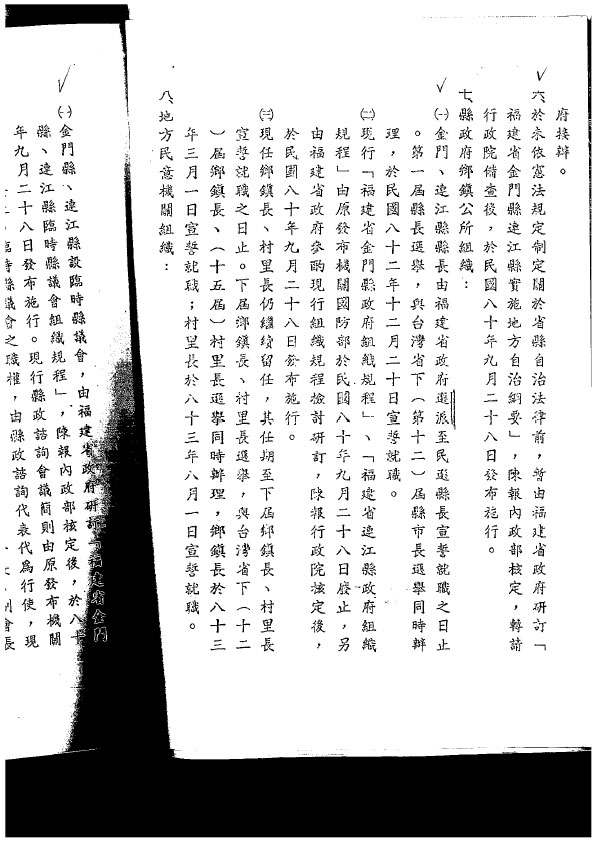 府接辦。
六、於未依憲法規定制定關於省縣自治法律前，暫由福建省政府研訂「
福建省金門縣連江縣實施地方自治綱要」，陳報內政部核定，轉請
行政院備查後，於民國八十年九月二十八日發布施行。
七、縣政府鄉鎮公所組織：
㈠金門、連江縣縣長由福建省政府遴派至民選縣長宣誓就職之日止
。第一屆縣長選舉，與台灣省下（第十二）屆縣市長選舉同時辦
理，於民國八十二年十二月二十日宣誓就職。
㈡現行「福建省金門縣政府組織規程」、「福建省連江縣政府組織
規程」由原發布機關國防部於民國八十年九月二十八日廢止，另
由福建省政府參酌現行組織規程檢討研訂，陳報行政院核定後，
於民國八十年九月二十八日發布施行。
㈢現任鄉鎮長、村里長仍繼續留任，其任期至下屆鄉鎮長、村里長
宣誓就職之日止。下屆鄉鎮長、村里長選舉，與台灣省下（十二
）屆鄉鎮長、（十五屆）村里長選舉同時辦理，鄉鎮長於八十三
年三月一日宣誓就職；村里長於八十三年八月一日宣誓就職。
八、地方民意機關組織：
㈠金門縣、連江縣設臨時縣議會，由福建省政府研訂「福建省金門
縣、連江縣臨時縣議會組織規程」，陳報內政部核定後，於八十
年九月二十八日發布施行。現行縣政諮詢會議簡則由原發布機關
臨時縣議會之職權，由縣政諮詢代表代為行使，現
會長